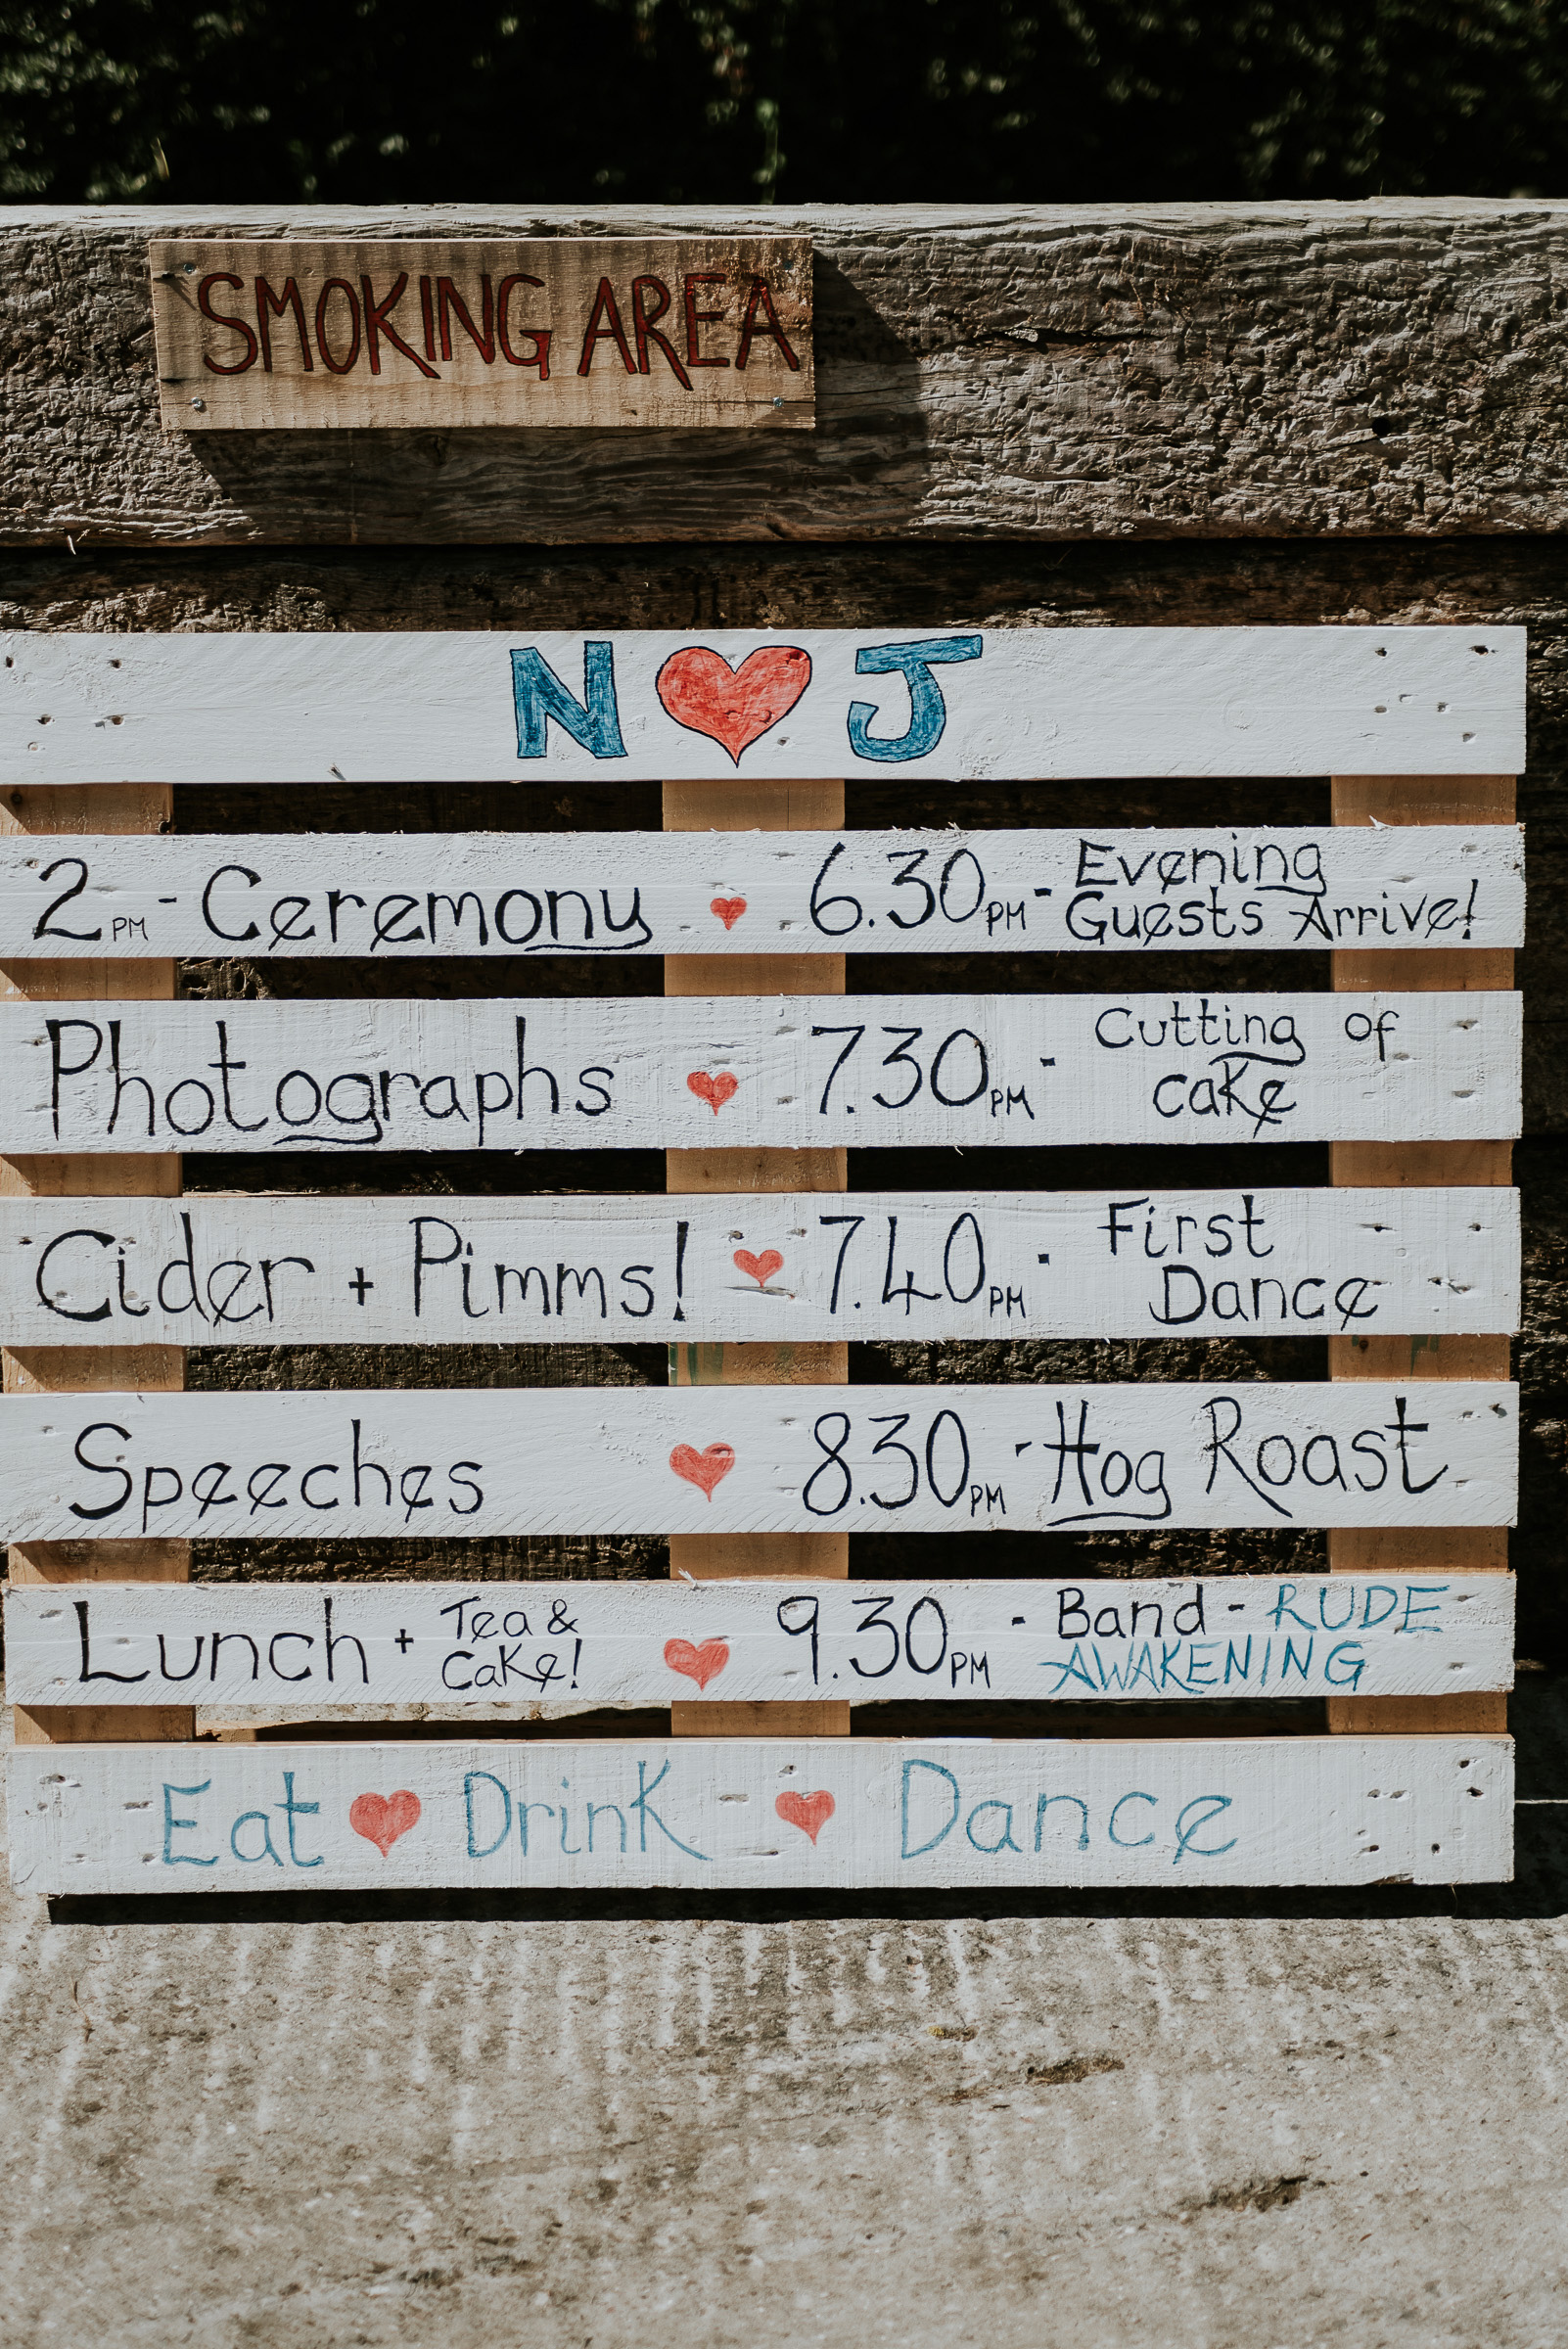 SMOKING AREA
N ♥ J
2PM - Ceremony ♥ 6.30PM - Evening
Guests Arrive!
Photographs ♥ 7.30PM - Cutting of
cake
Cider + Pimms! ♥ 7.40PM - First
Dance
Speeches ♥ 8.30PM - Hog Roast
Lunch + Tea &
Cake! ♥ 9.30PM - Band - RUDE
AWAKENING
Eat ♥ Drink ♥ Dance